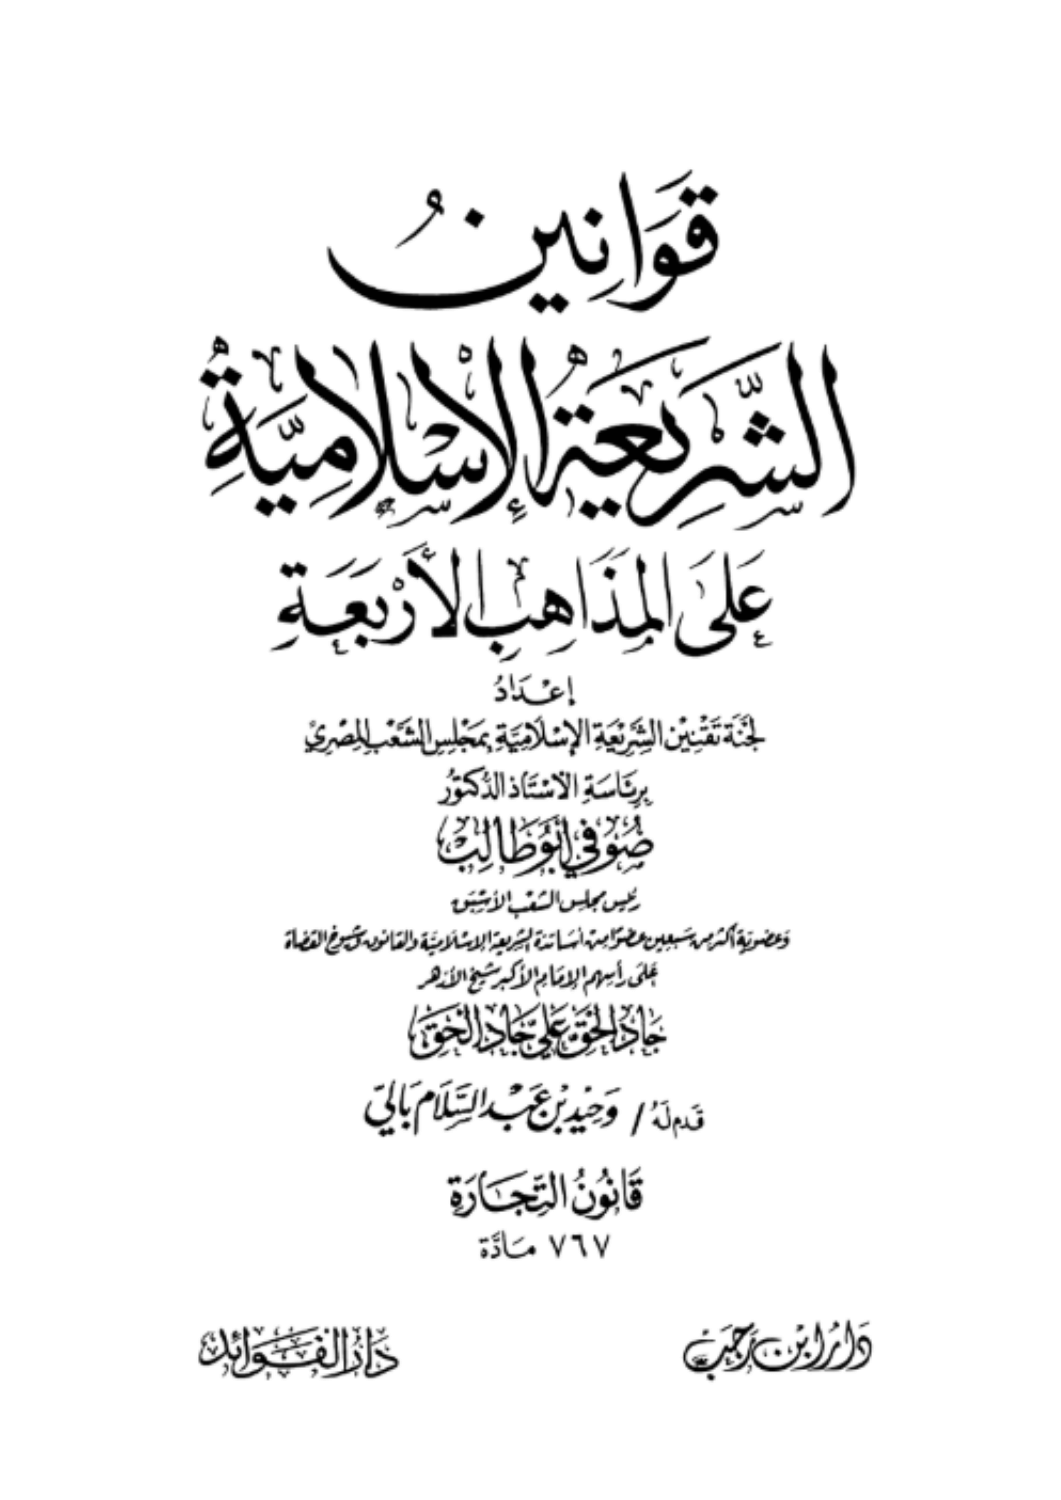 قَوَانِينُ
الشَّرِيعَةُ الإِسْلَامِيَّةِ
عَلَى المَذَاهِبِ الأَرْبَعَةِ
إِعْدَادُ
لَجْنَة تَقْنِيْنِ الشَّرِيْعَةِ الإِسْلَامِيَّةِ بِمَجْلِسِ الشَّعْبِ المِصْرِيِّ
بِرِئَاسَةِ الأُسْتَاذ الدُّكتُوْر
صُوْفِي أَبُوْ طَالِبْ
رئيس مجلس الشعب الأسبق
وَعضوية أكثر من سَبعين عضوًا من أساتذة الشريعة الإسلاميَّة والقانون وشيوخ القضاة
عَلى رأسهم الإمَام الأكبر شيخ الأزهر
جَاد الحَقّ عَلِيّ جَاد الحَقّ
قَدم لَهُ / وَحِيْد بْن عَبْد السَّلَام بَالِي
قَانُونُ التِّجَارَةِ
٧٦٧ مَادَّة
دَارُ ابْن رَجَبْ
دَارُ الفَوَائِد